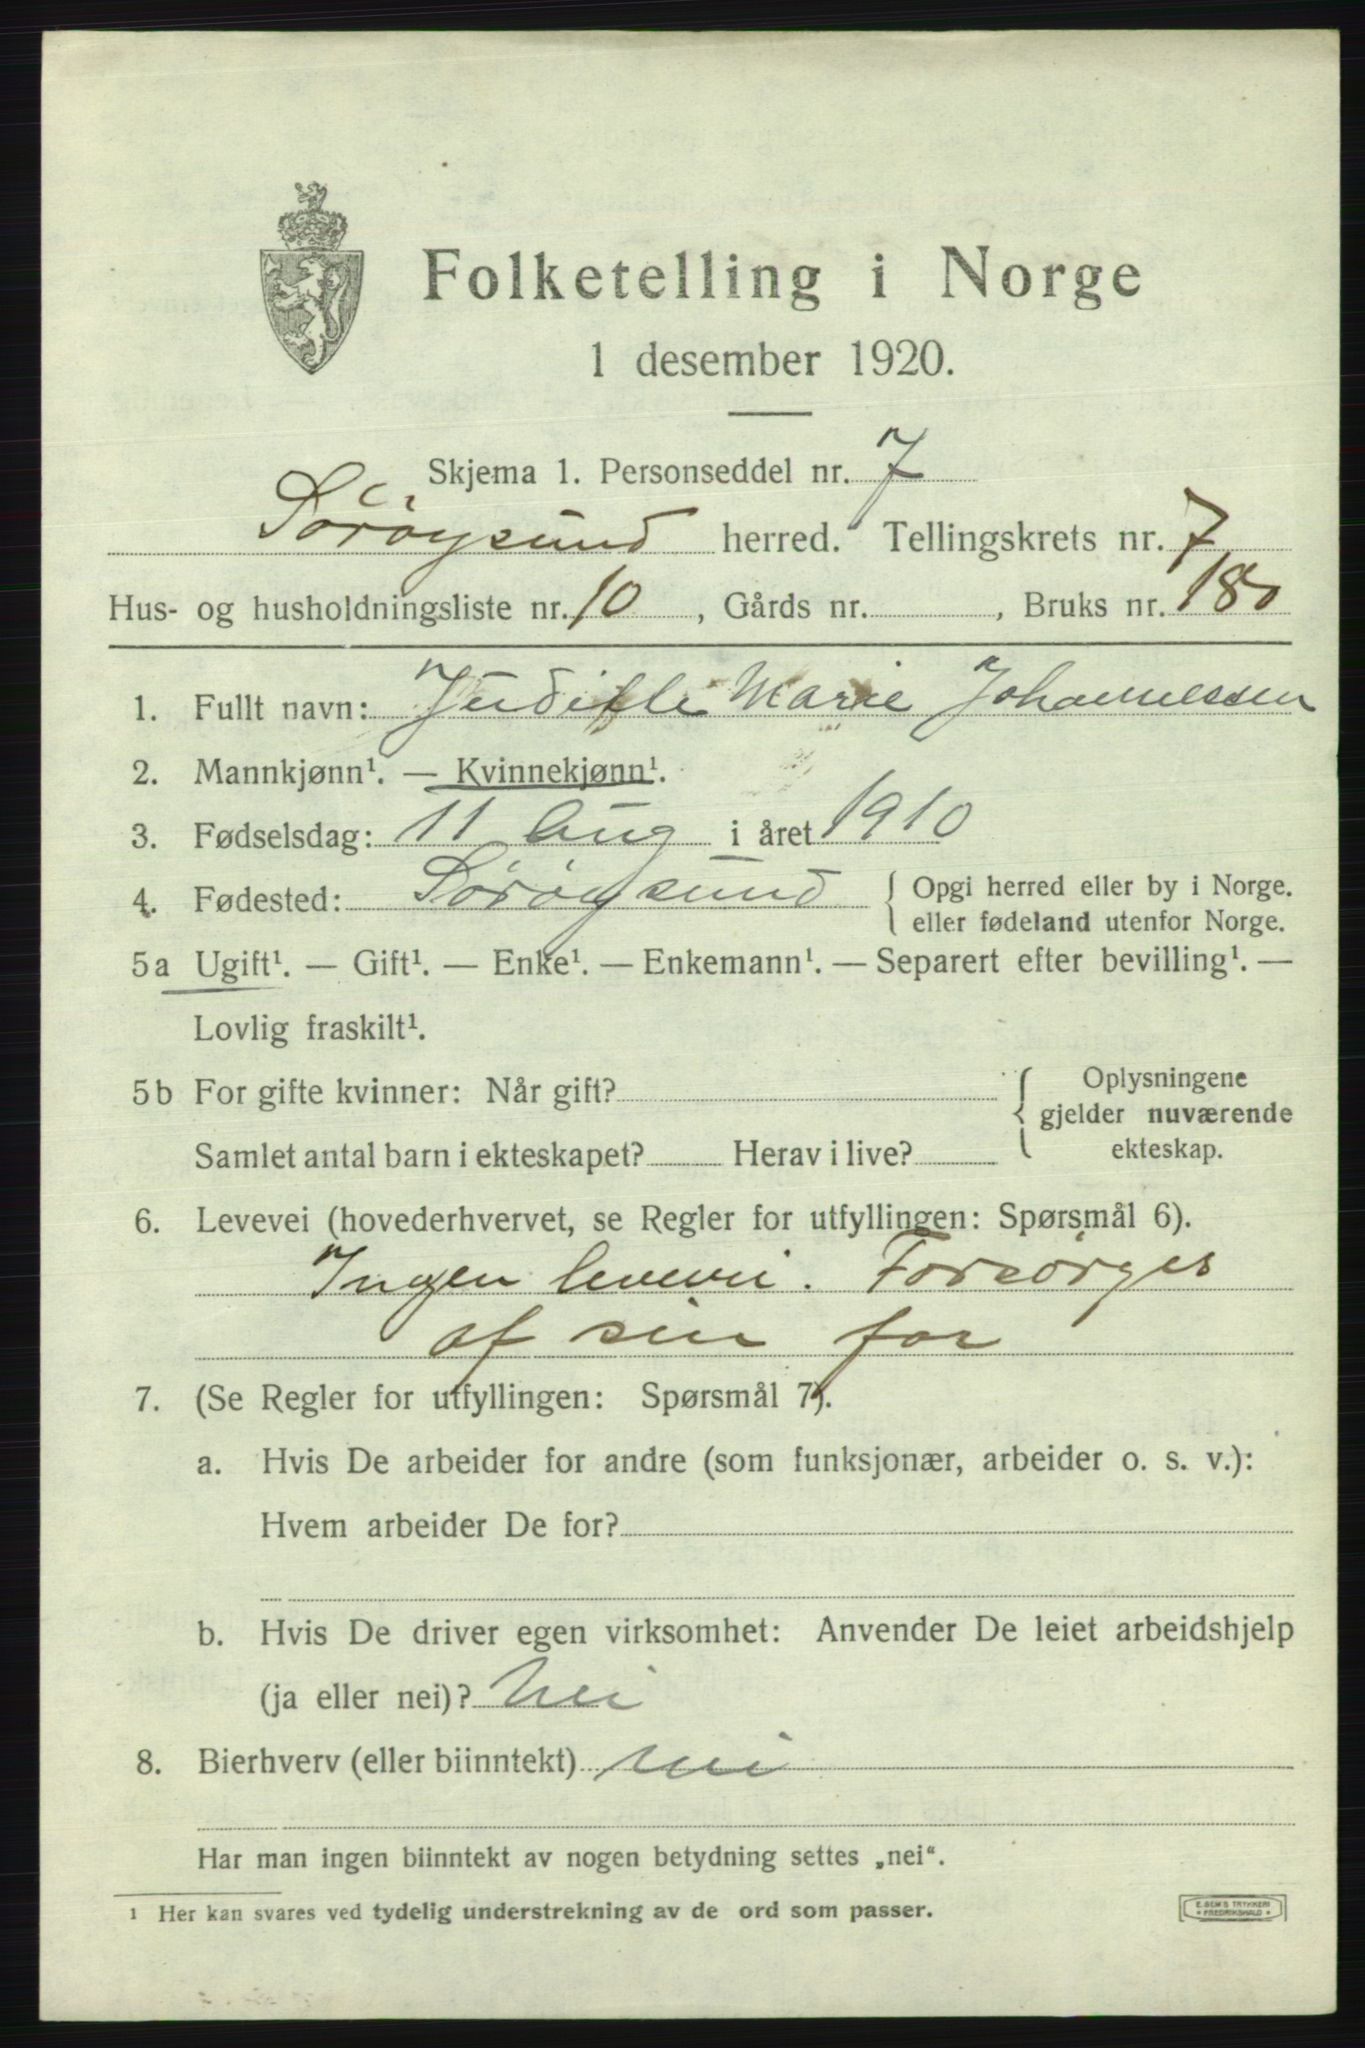 Folketelling i Norge
1 desember 1920.
Skjema 1. Personseddel nr. 7
Sørøysund herred. Tellingskrets nr. 7
Hus- og husholdningsliste nr. 10, Gårds nr. , Bruks nr. 180
1. Fullt navn: Judithe Marie Johannessen
2. Mannkjønn¹. — Kvinnekjønn¹.
3. Fødselsdag: 11 Aug i året 1910
4. Fødested: Sørøysund { Opgi herred eller by i Norge.
eller fødeland utenfor Norge.
5a Ugift¹. — Gift¹. — Enke¹. — Enkemann¹. — Separert efter bevilling¹. —
Lovlig fraskilt¹.
5b For gifte kvinner: Når gift? { Oplysningene
gjelder nuværende
Samlet antal barn i ekteskapet? Herav i live? ekteskap.
6. Levevei (hovederhvervet, se Regler for utfyllingen: Spørsmål 6).
Ingen levevei. Forsørges
af sin far
7. (Se Regler for utfyllingen: Spørsmål 7).
a. Hvis De arbeider for andre (som funksjonær, arbeider o. s. v.):
Hvem arbeider De for?
b. Hvis De driver egen virksomhet: Anvender De leiet arbeidshjelp
(ja eller nei)? Nei
8. Bierhverv (eller biinntekt) nei
Har man ingen biinntekt av nogen betydning settes „nei“.
1 Her kan svares ved tydelig understrekning av de ord som passer.
E. SEM'S TRYKKERI
FREDRIKSHALD